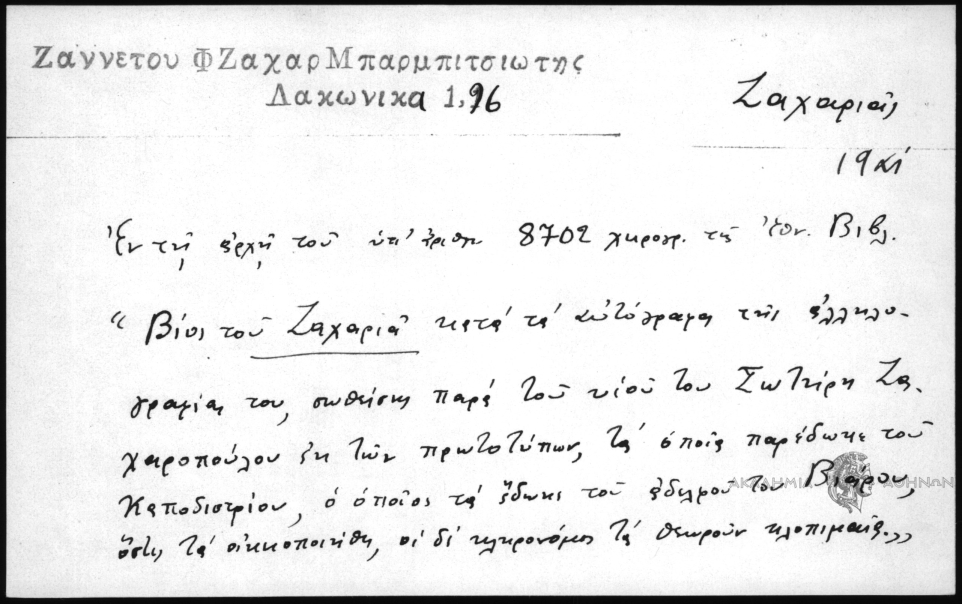 Ζαννετου Φ Ζαχαρ Μπαρμπιτσιωτης
Λακωνικα 1,96
Ζαχαριᾶς
19
Ἐν τῇ ἀρχῇ τοῦ ὑπ' ἀριθμ 8702 χειρογρ. τῆς Ἐθν. Βιβλ.
“Βίος τοῦ Ζαχαριᾶ κατά τά αὐτόγραφα τῆς ἀλληλο-
γραφίας του, σωθείσης παρά τοῦ υἱοῦ του Σωτήρη Ζα-
χαροπούλου ἐκ τῶν πρωτοτύπων, τά ὁποῖα παρέδωκε τοῦ
Καποδιστρίου, ὁ ὁποῖος τά ἔδωκε τοῦ ἀδελφοῦ του Βιάρου,
ὅστις τά οἰκιοποιήθη, οἱ δέ κληρονόμοι τά θεωροῦν κλοπιμαῖα.„
ΑΚΑΔΗΜΙΑ ΑΘΗΝΩΝ